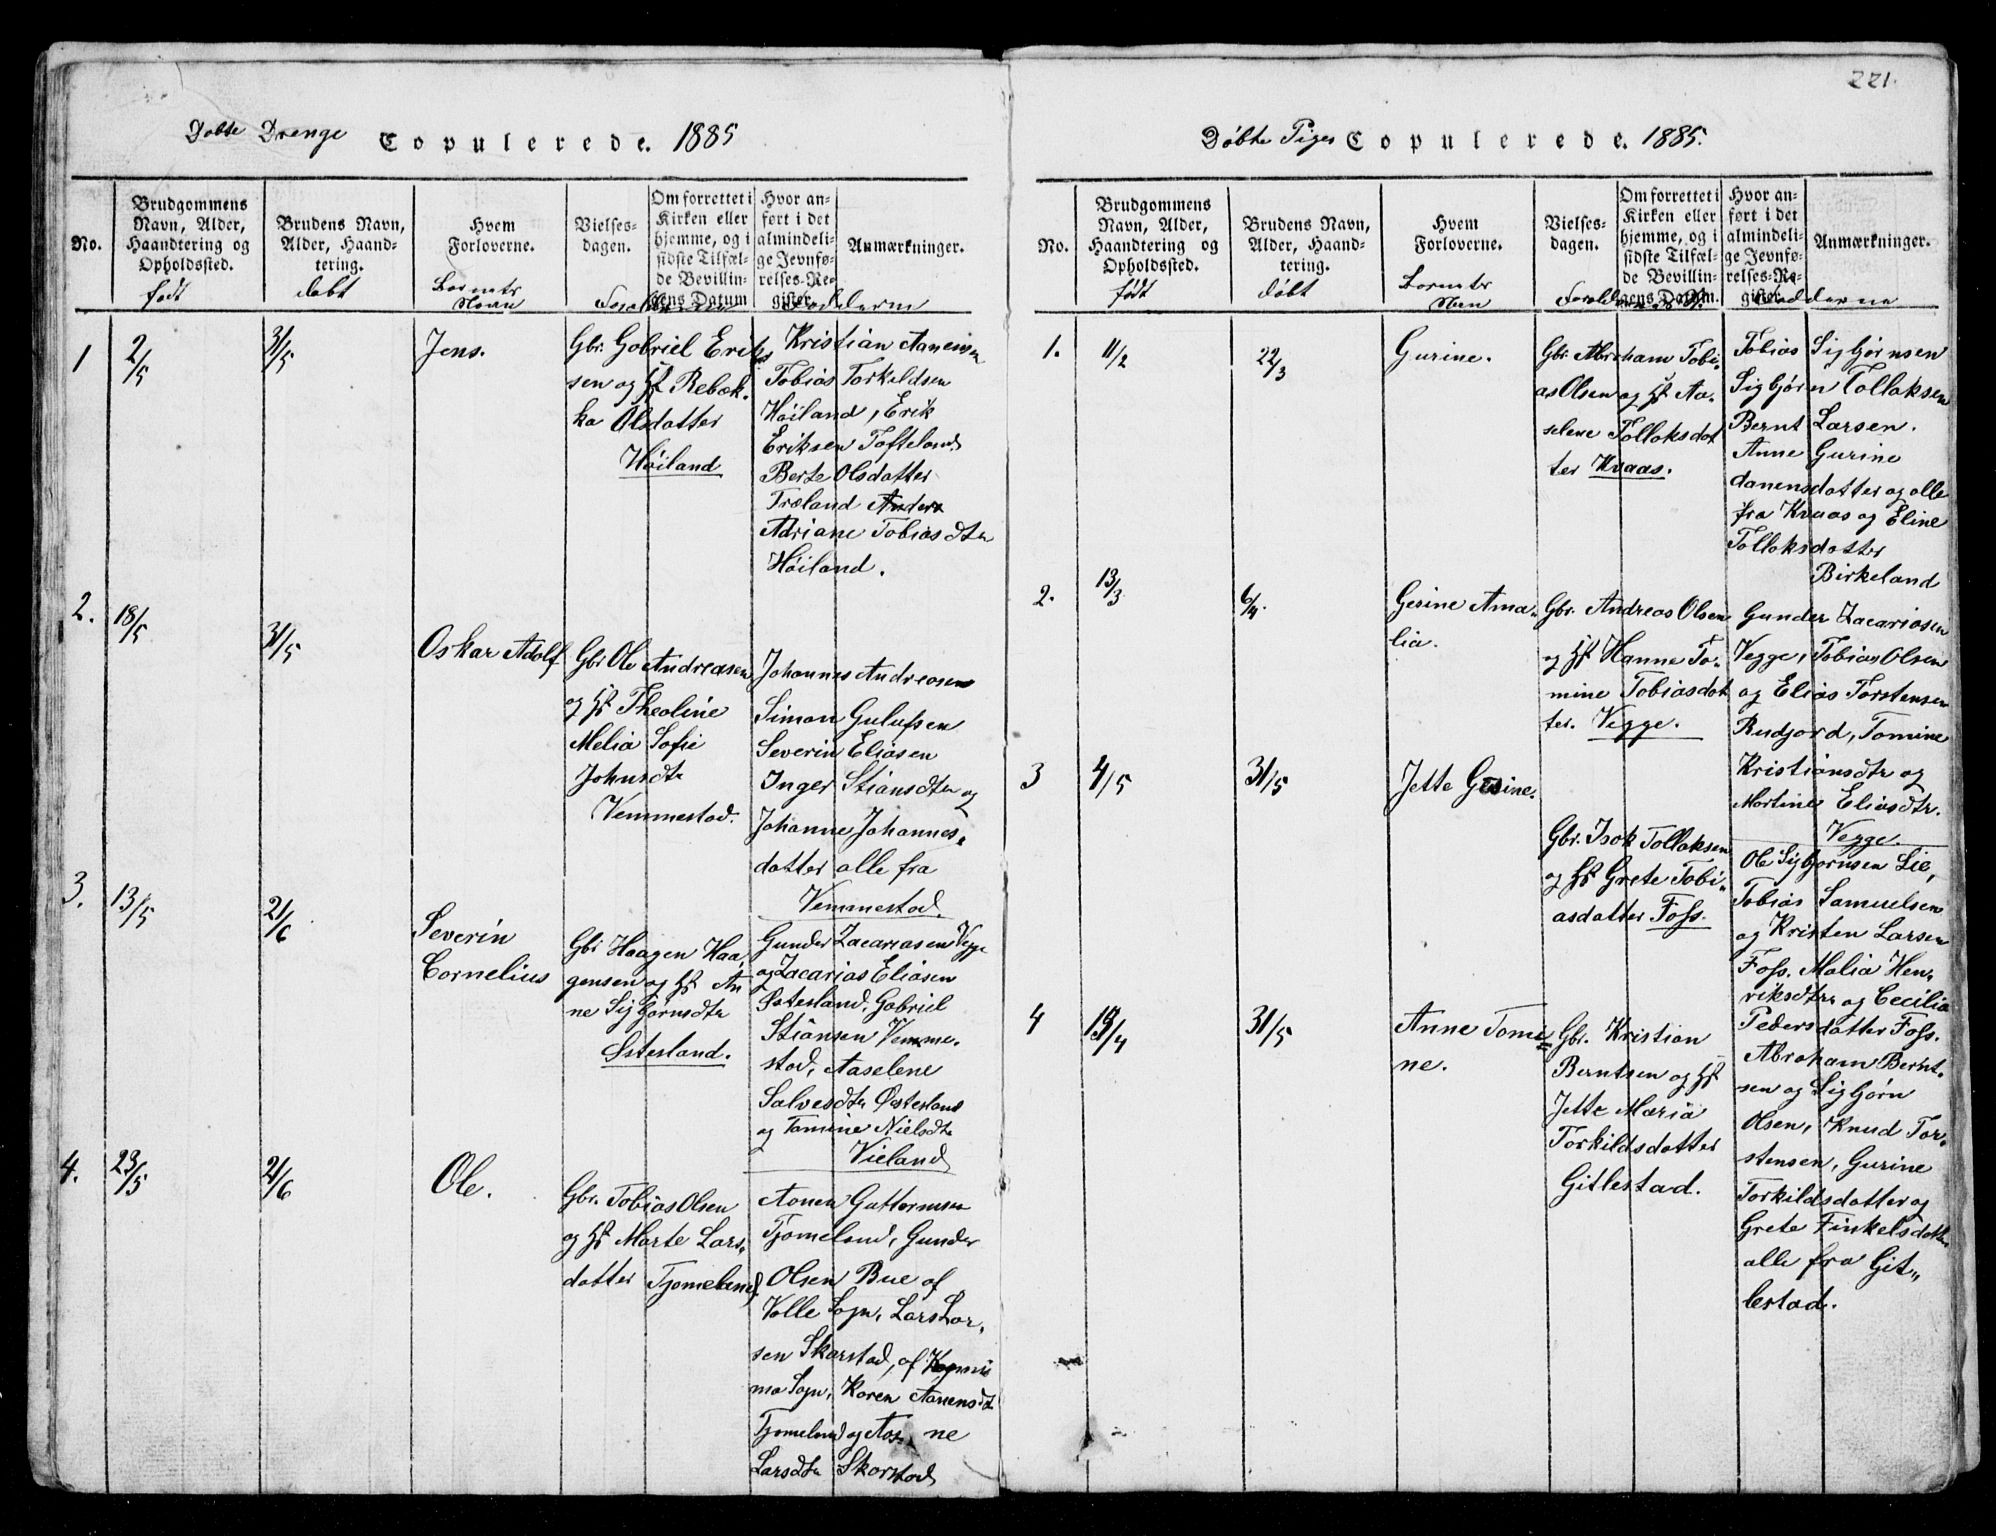 Døbte Drenge Copulerede. 1885
No.
Brudgommens
Navn, Alder,
Haandtering og
Opholdssted.
født
Brudens Navn,
Alder, Haand-
tering.
døbt
Hvem
Forloverne.
Barnets
Navn
Vielses-
dagen.
Om forrettet i
Kirken eller
hjemme, og i
sidste Tilfæl-
de Bevillin-
gens Datum
Hvor an-
ført i det
almindeli-
ge Jevnfø-
relses-Re-
gister.
Anmærkninger.
Fadderne
1
2/5
31/5
Jens.
Gbr. Gabriel Erik-
sen og Hst Rebæk-
ka Olsdatter
Høiland
Kristian Aanensen
Tobias Torkildsen
Høiland, Erik
Eriksen Tofteland
Berte Olsdatter
Træland
Adriane Tobiasdtr
Høiland.
2.
18/5
31/5
Oskar Adolf
Gbr Ole Andreasen
og Hst Theoline
Melia Sofie
Johnsdtr
Vemmestad.
Johannes Andreasen
Simon Gulufsen
Severin Eliasen
Inger Stiansdtr og
Johanne Johannes-
datter alle fra
Vemmestad.
3.
13/5
21/6
Severin
Cornelius
Gbr Haagen Haa-
gensen og Hst An
ne Sigbjørnsdtr
Østesland.
Gunder Zacariasen Vegge
og Zacarias Eliasen
Østesland, Gabriel
Stiansen Vemme-
stad, Aaselene
Salvesdtr Østesland
og Tomine Nielsdtr
Vieland
4.
23/5
21/6
Ole.
Gbr. Tobias Olsen
og Hst Marte Lars-
datter Tjomeland
Aanen Guttormsen
Tjomeland, Gunder
Olsen Bue af
Valle Sogn, Lars Lar-
sen Skarstad, af
Sogn, Karen Aanensdtr
Tjomeland og
Larsdtr Skarstad
221.
Døbte Piger Copulerede. 1885.
No.
Brudgommens
Navn, Alder,
Haandtering og
Opholdssted.
født
Brudens Navn,
Alder, Haand-
tering.
døbt
Hvem
Forloverne.
Barnets
Navn
Vielses-
dagen.
Om forrettet i
Kirken eller
hjemme, og i
sidste Tilfæl-
de Bevillin-
gens Datum.
Hvor an-
ført i det
almindeli-
ge Jevnfø-
relses-Re-
gister.
Anmærkninger.
Fadderne
1.
11/2
22/3
Gurine.
Gbr. Abraham Tobi-
as Olsen og Hst Aa-
selene Tollaksdat
ter Kvaas.
Tobias Sigbjørnsen
Sigbjørn Tollaksen
Bernt Larsen.
Anne Gurine
danensdatter og alle
fra Kvaas og Eline
Tollaksdatter
Birkeland
2.
13/3
6/4.
Gesine Ama-
lia.
Gbr. Andreas Olsen
og Hst Hanne To-
mine Tobiasdat
ter. Vegge.
Gunder Zacariasen
Vegge, Tobias Olsen
og Elias Torstensen
Rudjord, Tomine
Kristiansdtr og
Martine Eliasdtr.
Vegge.
3
4/5
31/5
Jette Gesine.
Gbr. Isak Tollaksen
og Hst Grete Tobi-
asdatter Foss.
Ole Sigbjørnsen Lie,
Tobias Samuelsen
og Kristen Larsen
Foss. Malia Hen-
riksdtr og Cecilia
Pedersdatter Foss.
4
19/4
31/5
Anne Tomi=
ne.
Gbr. Kristian
Berntsen og Hst
Jette Maria
Torkildsdatter
Gitlestad.
Abraham Bernt-
sen og Sigbjørn
Olsen, Knud Tor-
stensen, Gurine
Torkildsdatter og
Grete Finkelsdatter
alle fra Git-
lestad.